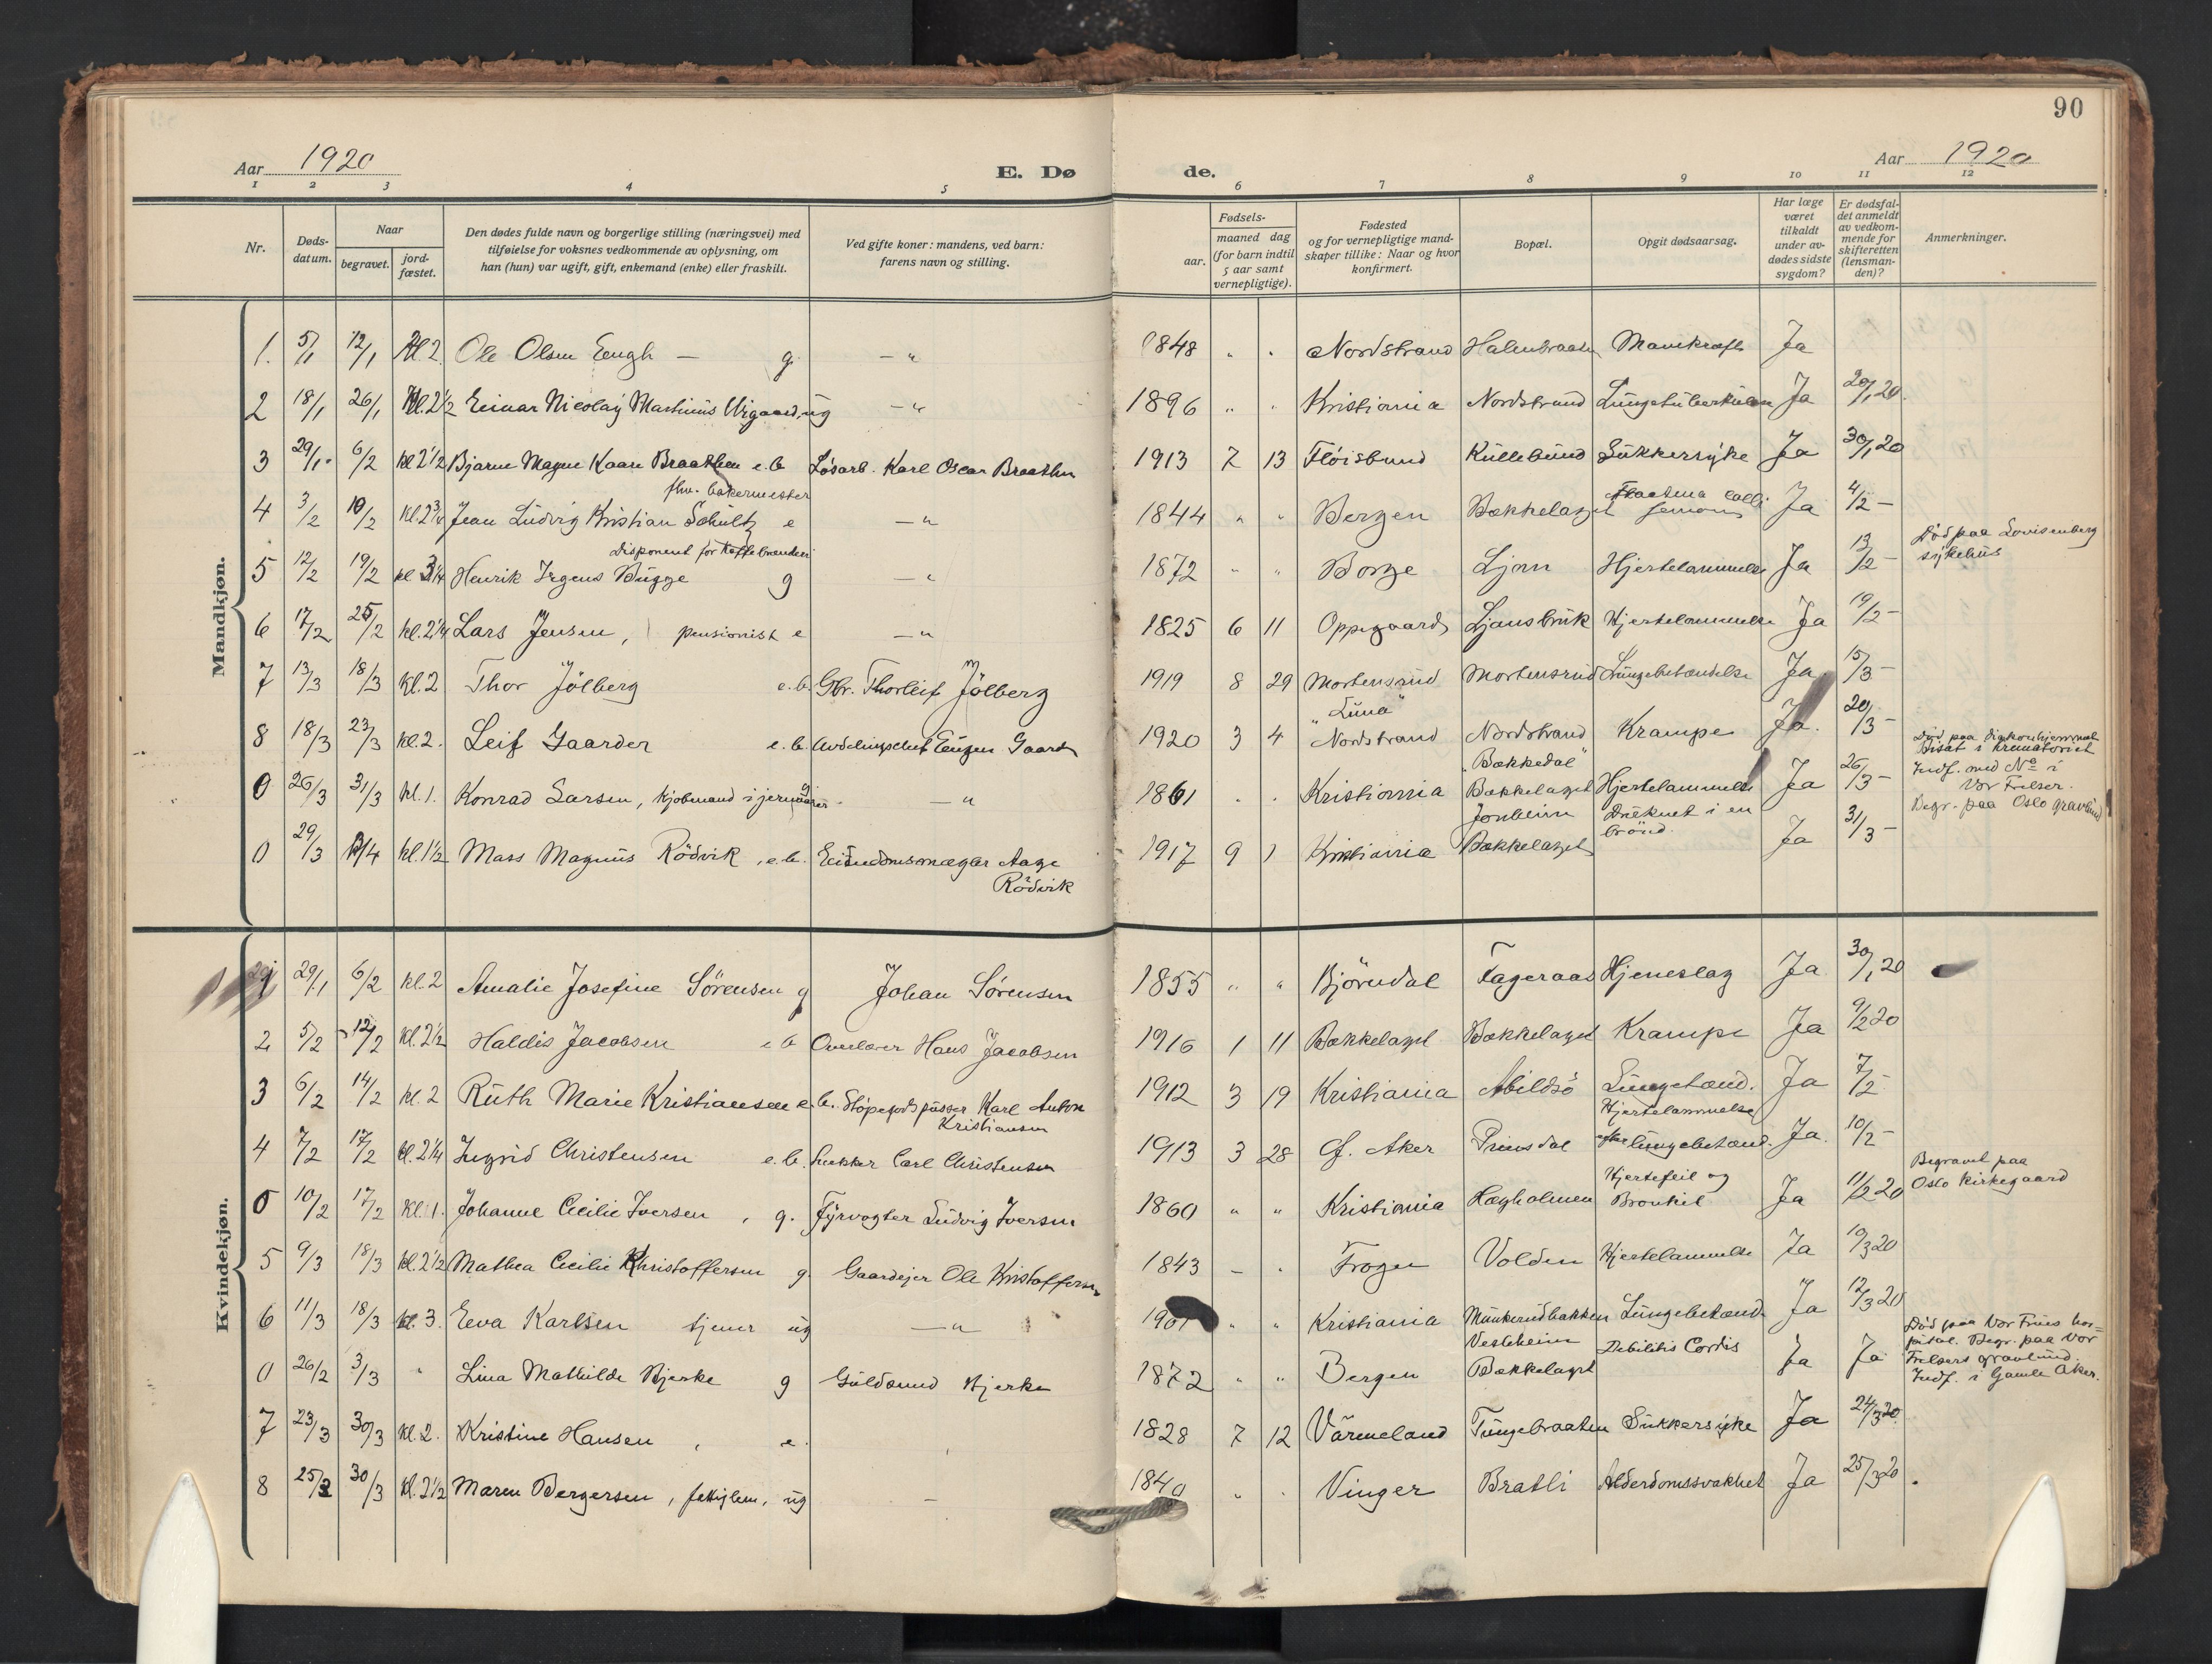 90
Aar 1920
E. Dø
de.
Aar 1920
1 2 3 4 5 6 7 8 9 10 11 12
Nr.
Døds-
datum.
Naar
begravet.
jord-
fæstet.
Den dødes fulde navn og borgerlige stilling (næringsvei) med
tilføielse for voksnes vedkommende av oplysning, om
han (hun) var ugift, gift, enkemand (enke) eller fraskilt.
Ved gifte koner: mandens, ved barn:
farens navn og stilling.
Fødsels-
aar.
maaned dag
(for barn indtil
5 aar samt
vernepligtige).
Fødested
og for vernepligtige mand-
skaper tillike: Naar og hvor
konfirmert.
Bopæl.
Opgit dødsaarsag.
Har læge
været
tilkaldt
under av-
dødes sidste
sygdom?
Er dødsfal-
det anmeldt
av vedkom-
mende for
skifteretten
(lensman-
den)?
Anmerkninger.
Mandkjøn.
1. 5/1 12/1 Kl. 2 Ole Olsen Eengh — g. — " 1848 " " Nordstrand Holmbraaten Mavekræft Ja
2 18/1 26/1 Kl. 2 1/2 Einar Nicolay Martinius ug — " 1896 " " Kristiania Nordstrand Lungetuberkulose Ja 20/1 20.
3 29/1 6/2 kl 2 1/2 Bjarne Magne Kaare Braathen e. b. Løsarb. Karl Oscar Braathen 1913 7 13 Fløisbund Kullebund Sukkersyke Ja 30/1 20
fhv. bakermester
4 3/2 10/2 kl. 2 3/4 Jean Ludvig Kristian Schultz e — " 1844 " " Bergen Bækkelaget Ja 4/2 —
Disponent for Kaffebrænderi
5 12/2 19/2 kl 3 1/4 Henrik Irgens Bugge g — " 1872 " " Borge Ljan Hjertelammelse Ja 13/2 — Død paa Lovisenberg
sykehus
6 17/2 25/2 kl. 2 1/4 Lars Jensen, pensionist e — " 1825 6 11 Oppegaard Ljansbruk Hjertelammelse Ja 19/2 —
7 13/3 18/3 Kl. 2 Thor Jölberg e. b. Gbr. Thorleif Jölberg 1919 8 29 Mortensrud Mortensrud Lungebetændelse Ja 15/3 —
"Luna"
8 18/3 23/3 kl. 2. Leif Gaarder e. b. Avdelingschef Eugen Gaarder 1920 3 4 Nordstrand Nordstrand Krampe Ja. 20/3 —
"Bækkedal"
Død paa Diakonhjemmet
Bisat i Krematoriet
0 26/3 31/3 kl. 1. Konrad Larsen, kjøbmand i jernvarer g — " 1861 " " Kristiania Bækkelaget Hjertelammelse Ja 26/3 — Indf. med No i
Vor Frelser.
Jonheim Druknet i en
brönd.
Begr. paa Oslo gravlund
0 29/3 8/4 kl. 1 1/2 Mass Magnus Rödvik, e. b. Eiendomsmægler Aage
Rödvik 1917 9 1 Kristiania Bækkelaget Ja 31/3 —
Kvindekjøn.
1 29/1 6/2 kl. 2 Amalie Josefine Sörensen g Johan Sörensen 1855 " " Björndal Fageraas Hjerneslag Ja 30/1 20
2 5/2 12/2 kl. 2 1/2 Haldis Jacobsen e b Overlærer Hans Jacobsen 1916 1 11 Bækkelaget Bækkelaget Krampe Ja 9/2 20
3 6/2 14/2 kl. 2 Ruth Marie Kristiansen e. b. Støpegodspusser Karl Anton
Kristiansen 1912 3 19 Kristiania Abildsö Lungebetænd. Ja 7/2 —
Hjertelammelse
4 7/2 17/2 kl. 2 1/4 Ingrid Christensen e. b. Snekker Carl Christensen 1913 3 28 G. Aker Prinsdal efter lungebetænd. Ja. 10/2 —
Hjertefeil og
0 10/2 17/2 kl. 1. Johanne Cicilie Iversen, g. Fyrvogter Ludvig Iversen 1860 " " Kristiania Hægholmen Bronkit Ja 11/2 20 Begravet paa
Oslo kirkegaard
5 9/3 18/3 kl. 2 1/2 Mathea Cicilie Khristoffersen g. Gaardejer Ole Kristoffersen 1843 — " Frogn Volden Hjertelammelse Ja 10/3 20
6 11/3 18/3 kl. 3. Eeva Karlsen tjener ug — " " " Kristiania Munkerudbakken Lungebetænd. Ja 12/3 20
Vestheim Debilitis Cordis
0 26/2 3/3 " Lina Mathilde Bjerke g Guldsmed Bjerke 1872 " " Bergen Bækkelaget Ja Ja Död paa Vor Frues hos-
pital. Begr. paa Vor
Frelsers gravlund.
Indf. i Gamle Aker.
7 23/3 30/3 kl. 2. Kristine Hansen, e. 1828 7 12 Värmeland Tungebraaten Sukkersyke Ja 24/3 20.
8 25/3 30/3 kl. 2 1/2 Maren Bergersen, ug — 1840 " " Vinger Bratli Alderdomssvakhet Ja 25/3 20.